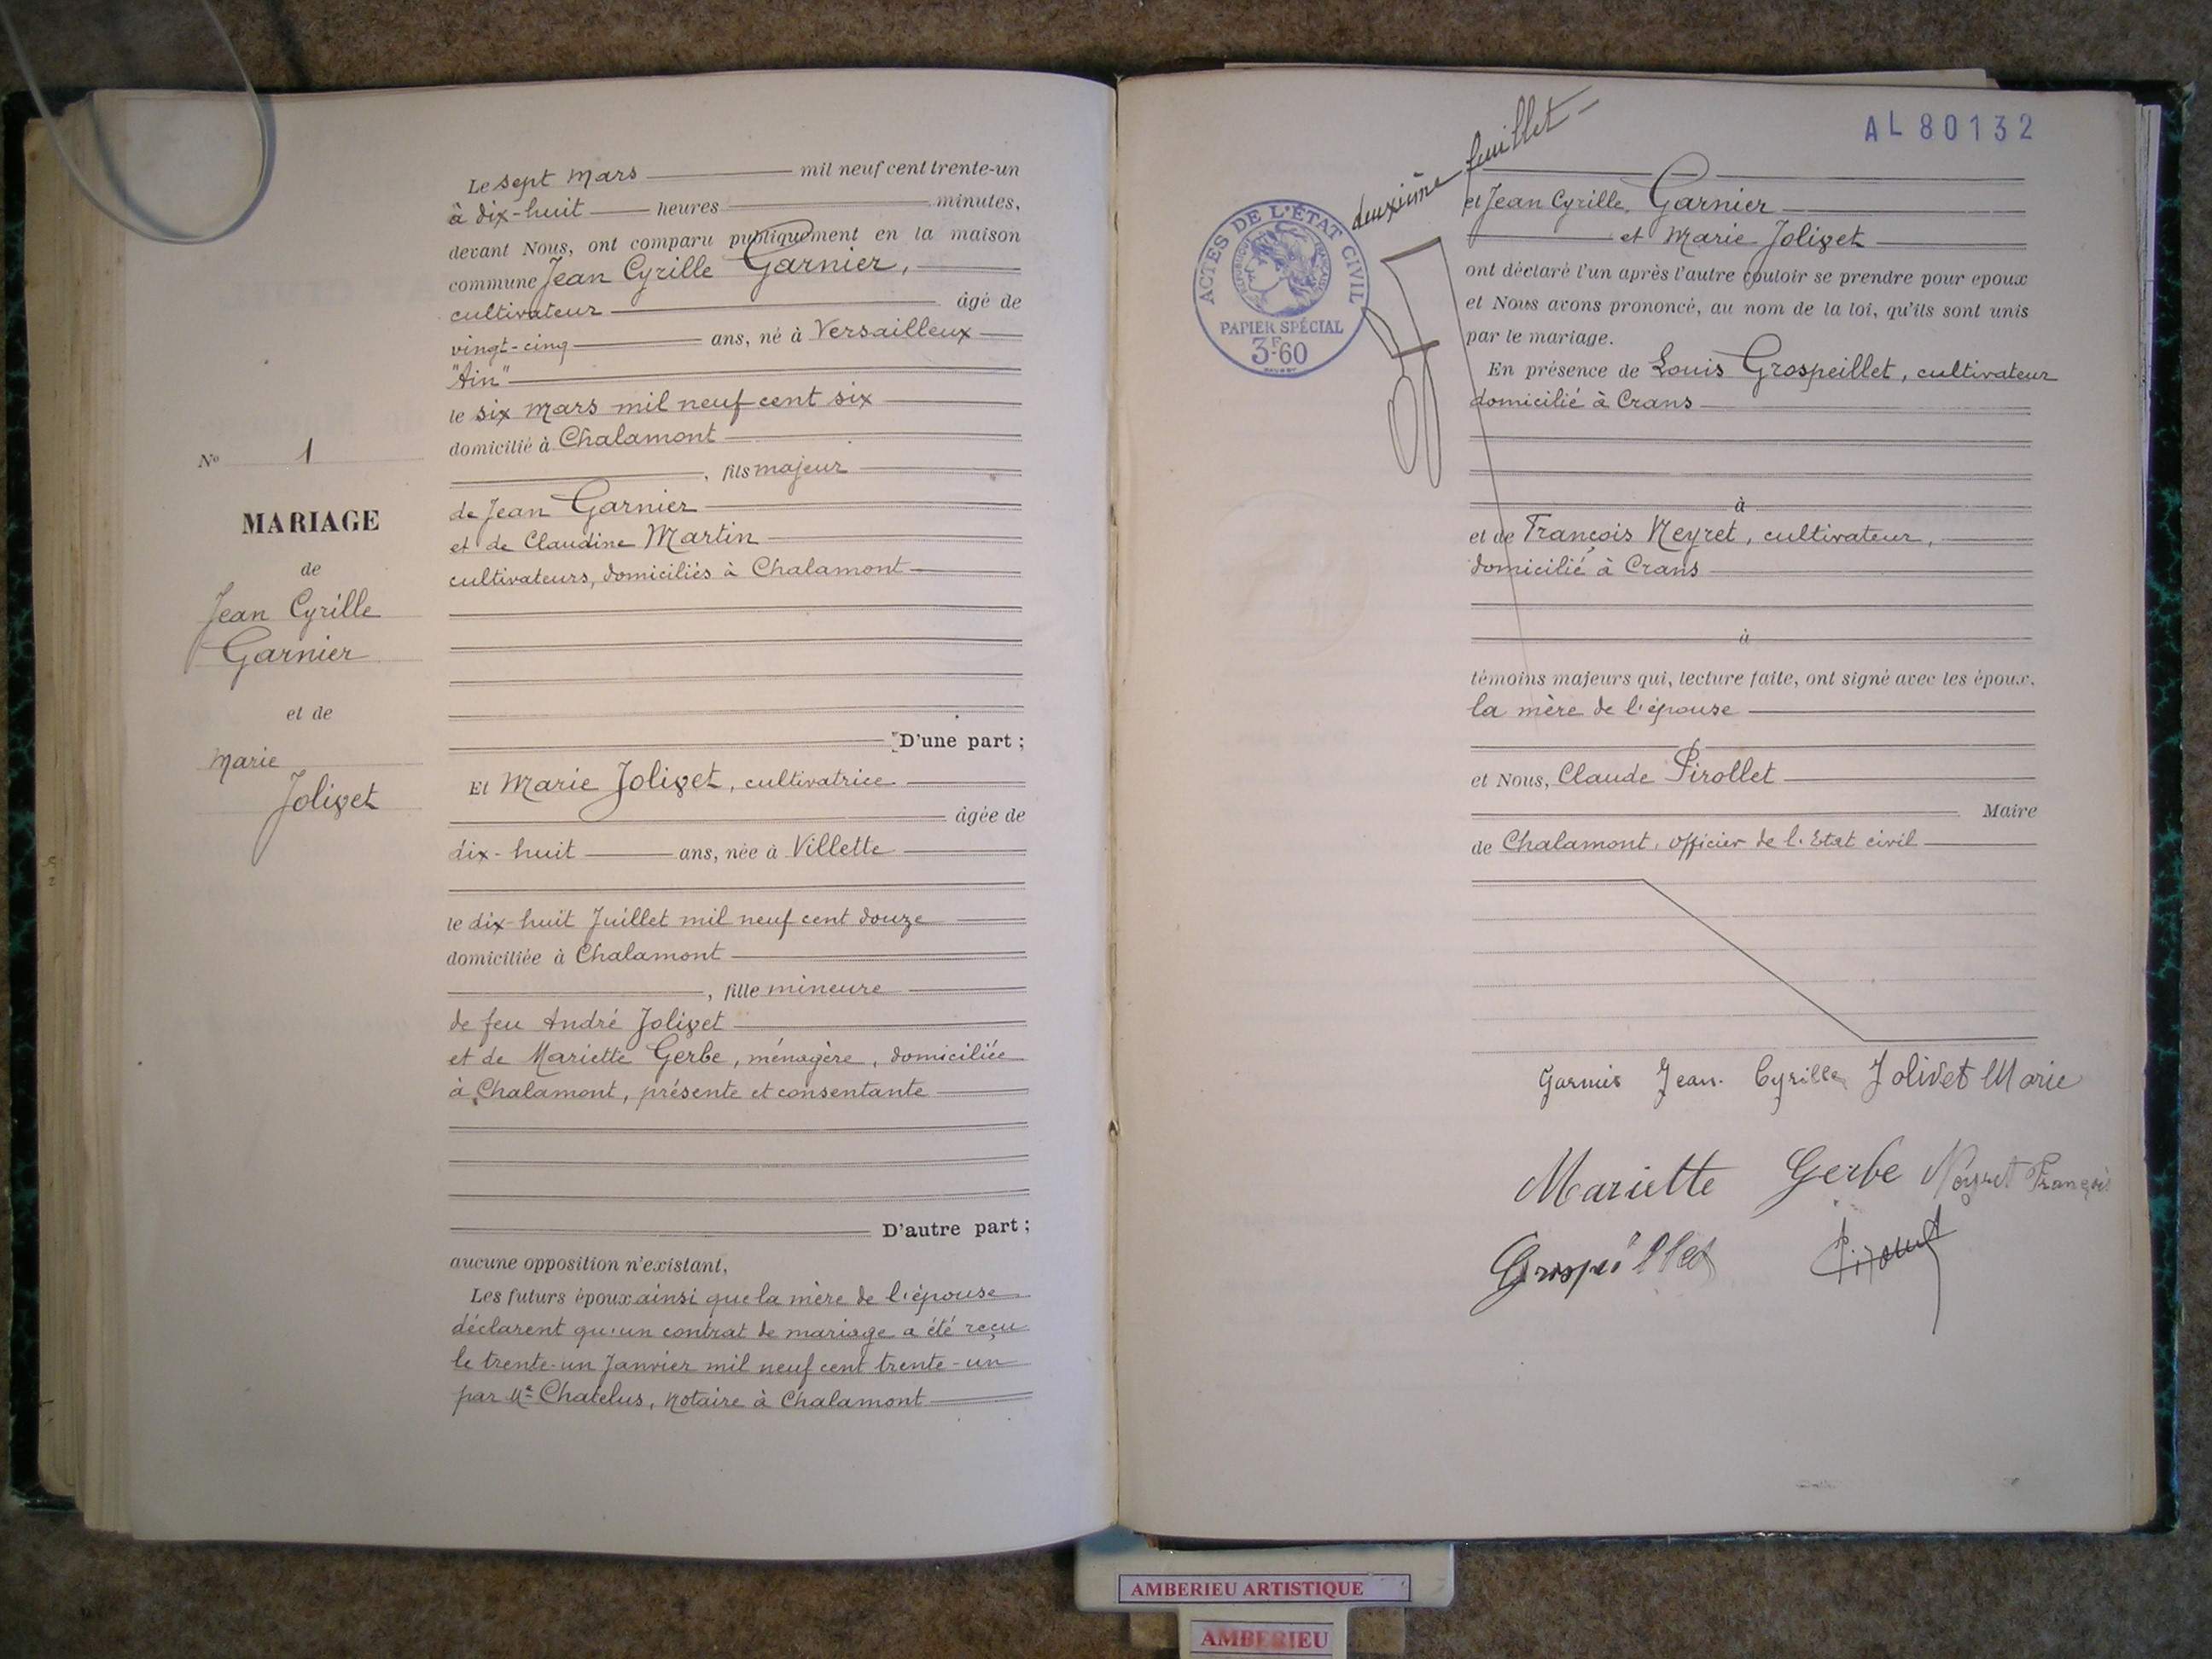 Le sept Mars mil neuf cent trente-un
à dix-huit heures minutes,
devant Nous, ont comparu publiquement en la maison
commune Jean Cyrille Garnier,
cultivateur âgé de
vingt-cinq ans, né à Versailleux
"Ain"
le six Mars mil neuf cent six
domicilié à Chalamont
, fils majeur
de Jean Garnier
et de Claudine Martin
cultivateurs, domiciliés à Chalamont
D'une part ;
Et Marie Jolivet, cultivatrice
âgée de
dix-huit ans, née à Villette
le dix-huit Juillet mil neuf cent douze
domiciliée à Chalamont
, fille mineure
de feu André Jolivet
et de Mariette Gerbe, ménagère, domiciliée
à Chalamont, présente et consentante
D'autre part ;
aucune opposition n'existant,
Les futurs époux ainsi que la mère de l'épouse
déclarent qu'un contrat de mariage a été reçu
le trente-un Janvier mil neuf cent trente-un
par Me Chatelus, Notaire à Chalamont
No 1
MARIAGE
de
Jean Cyrille
Garnier
et de
Marie
Jolivet
AL 80132
deuxième feuillet
ACTES DE L'ÉTAT CIVIL
RÉPUBLIQUE FRANÇAISE
PAPIER SPÉCIAL
3F60
et Jean Cyrille Garnier
et Marie Jolivet
ont déclaré l'un après l'autre vouloir se prendre pour époux
et Nous avons prononcé, au nom de la loi, qu'ils sont unis
par le mariage.
En présence de Louis Grospeillet, cultivateur
domicilié à Crans
à
et de François Neyret, cultivateur,
domicilié à Crans
à
témoins majeurs qui, lecture faite, ont signé avec les époux.
la mère de l'épouse
et Nous, Claude Pirollet
Maire
de Chalamont, officier de l'Etat civil
Garnier Jean Cyrille Jolivet Marie
Mariette Gerbe Neyret François
Grospeillet
AMBERIEU ARTISTIQUE
AMBERIEU